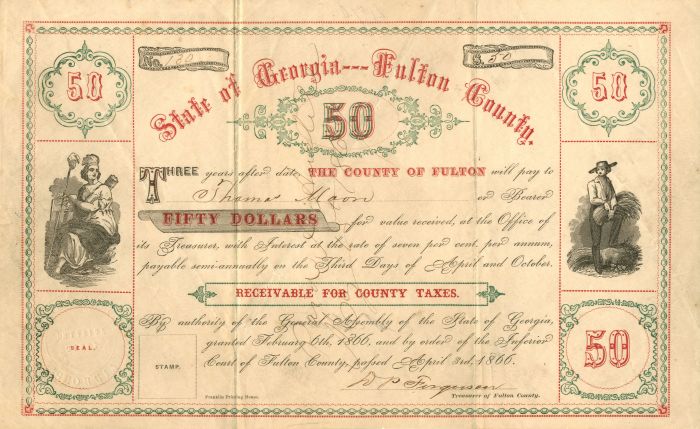 No. 130
$ 50
State of Georgia---Fulton County.
50
50
50
THREE years after date, THE COUNTY OF FULTON will pay to
Thomas Moon or Bearer
FIFTY DOLLARS for value received, at the Office of
its Treasurer, with Interest at the rate of seven per cent. per annum,
payable semi-annually on the Third Days of April and October.
RECEIVABLE FOR COUNTY TAXES.
By authority of the General Assembly of the State of Georgia,
granted February 6th, 1866, and by order of the Inferior
Court of Fulton County, passed April 3rd, 1866.
SEAL.
STAMP.
50
D P Ferguson
Franklin Printing House.
Treasurer of Fulton County.